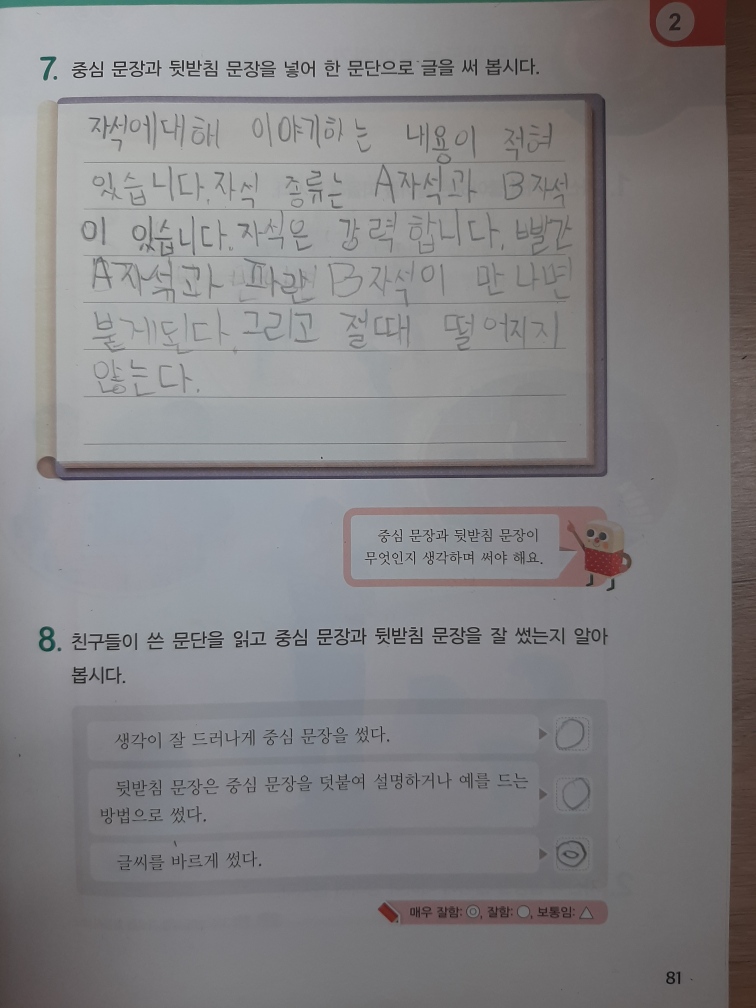 2
7. 중심 문장과 뒷받침 문장을 넣어 한 문단으로 글을 써 봅시다.
자석에대해 이야기하는 내용이 적혀
있습니다.자석 종류는 A자석과 B자석
이 있습니다.자석은 강력합니다.빨간
A자석과 파란B자석이 만나면
붙게된다.그리고 절때 떨어지지
않는다.
중심 문장과 뒷받침 문장이
무엇인지 생각하며 써야 해요.
8. 친구들이 쓴 문단을 읽고 중심 문장과 뒷받침 문장을 잘 썼는지 알아
봅시다.
생각이 잘 드러나게 중심 문장을 썼다.
뒷받침 문장은 중심 문장을 덧붙여 설명하거나 예를 드는
방법으로 썼다.
글씨를 바르게 썼다.
매우 잘함: ◎, 잘함: ○, 보통임: △
81